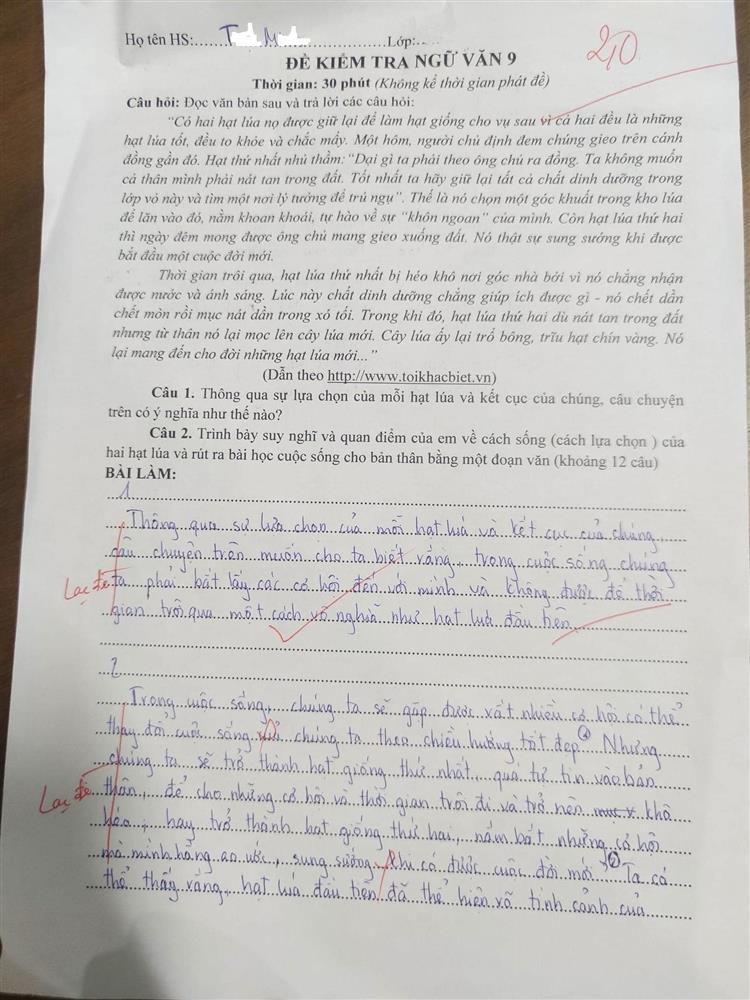 Họ tên HS:..... T M ..............Lớp:....
2,0
ĐỀ KIỂM TRA NGỮ VĂN 9
Thời gian: 30 phút (Không kể thời gian phát đề)
Câu hỏi: Đọc văn bản sau và trả lời các câu hỏi:
"Có hai hạt lúa nọ được giữ lại để làm hạt giống cho vụ sau vì cả hai đều là những
hạt lúa tốt, đều to khỏe và chắc mẩy. Một hôm, người chủ định đem chúng gieo trên cánh
đồng gần đó. Hạt thứ nhất nhủ thầm: "Dại gì ta phải theo ông chủ ra đồng. Ta không muốn
cả thân mình phải nát tan trong đất. Tốt nhất ta hãy giữ lại tất cả chất dinh dưỡng trong
lớp vỏ này và tìm một nơi lý tưởng để trú ngụ". Thế là nó chọn một góc khuất trong kho lúa
để lăn vào đó, nằm khoan khoái, tự hào về sự "khôn ngoan" của mình. Còn hạt lúa thứ hai
thì ngày đêm mong được ông chủ mang gieo xuống đất. Nó thật sự sung sướng khi được
bắt đầu một cuộc đời mới.
Thời gian trôi qua, hạt lúa thứ nhất bị héo khô nơi góc nhà bởi vì nó chẳng nhận
được nước và ánh sáng. Lúc này chất dinh dưỡng chẳng giúp ích được gì - nó chết dần
chết mòn rồi mục nát dần trong xó tối. Trong khi đó, hạt lúa thứ hai dù nát tan trong đất
nhưng từ thân nó lại mọc lên cây lúa mới. Cây lúa ấy lại trổ bông, trĩu hạt chín vàng. Nó
lại mang đến cho đời những hạt lúa mới..."
(Dẫn theo http://www.toikhacbiet.vn)
Câu 1. Thông qua sự lựa chọn của mỗi hạt lúa và kết cục của chúng, câu chuyện
trên có ý nghĩa như thế nào?
Câu 2. Trình bày suy nghĩ và quan điểm của em về cách sống (cách lựa chọn ) của
hai hạt lúa và rút ra bài học cuộc sống cho bản thân bằng một đoạn văn (khoảng 12 câu)
BÀI LÀM:
1
Thông qua sự lựa chọn của mỗi hạt lúa và kết cục của chúng,
câu chuyện trên muốn cho ta biết rằng, trong cuộc sống chúng
Lạc đề ta phải bắt lấy các cơ hội đến với mình và không được để thời
gian trôi qua một cách vô nghĩa như hạt lúa đầu tiên.
2
Trong cuộc sống, chúng ta sẽ gặp được rất nhiều cơ hội có thể
thay đổi cuộc sống của chúng ta theo chiều hướng tốt đẹp. Nhưng
chúng ta sẽ trở thành hạt giống thứ nhất, quá tự tin vào bản
Lạc đề thân, để cho những cơ hội và thời gian trôi đi và trở nên khô
héo, hay trở thành hạt giống thứ hai, nắm bắt những cơ hội
mà mình hằng ao ước, sung sướng khi có được cuộc đời mới? Ta có
thể thấy rằng, hạt lúa đầu tiên đã thể hiện rõ tình cảnh của